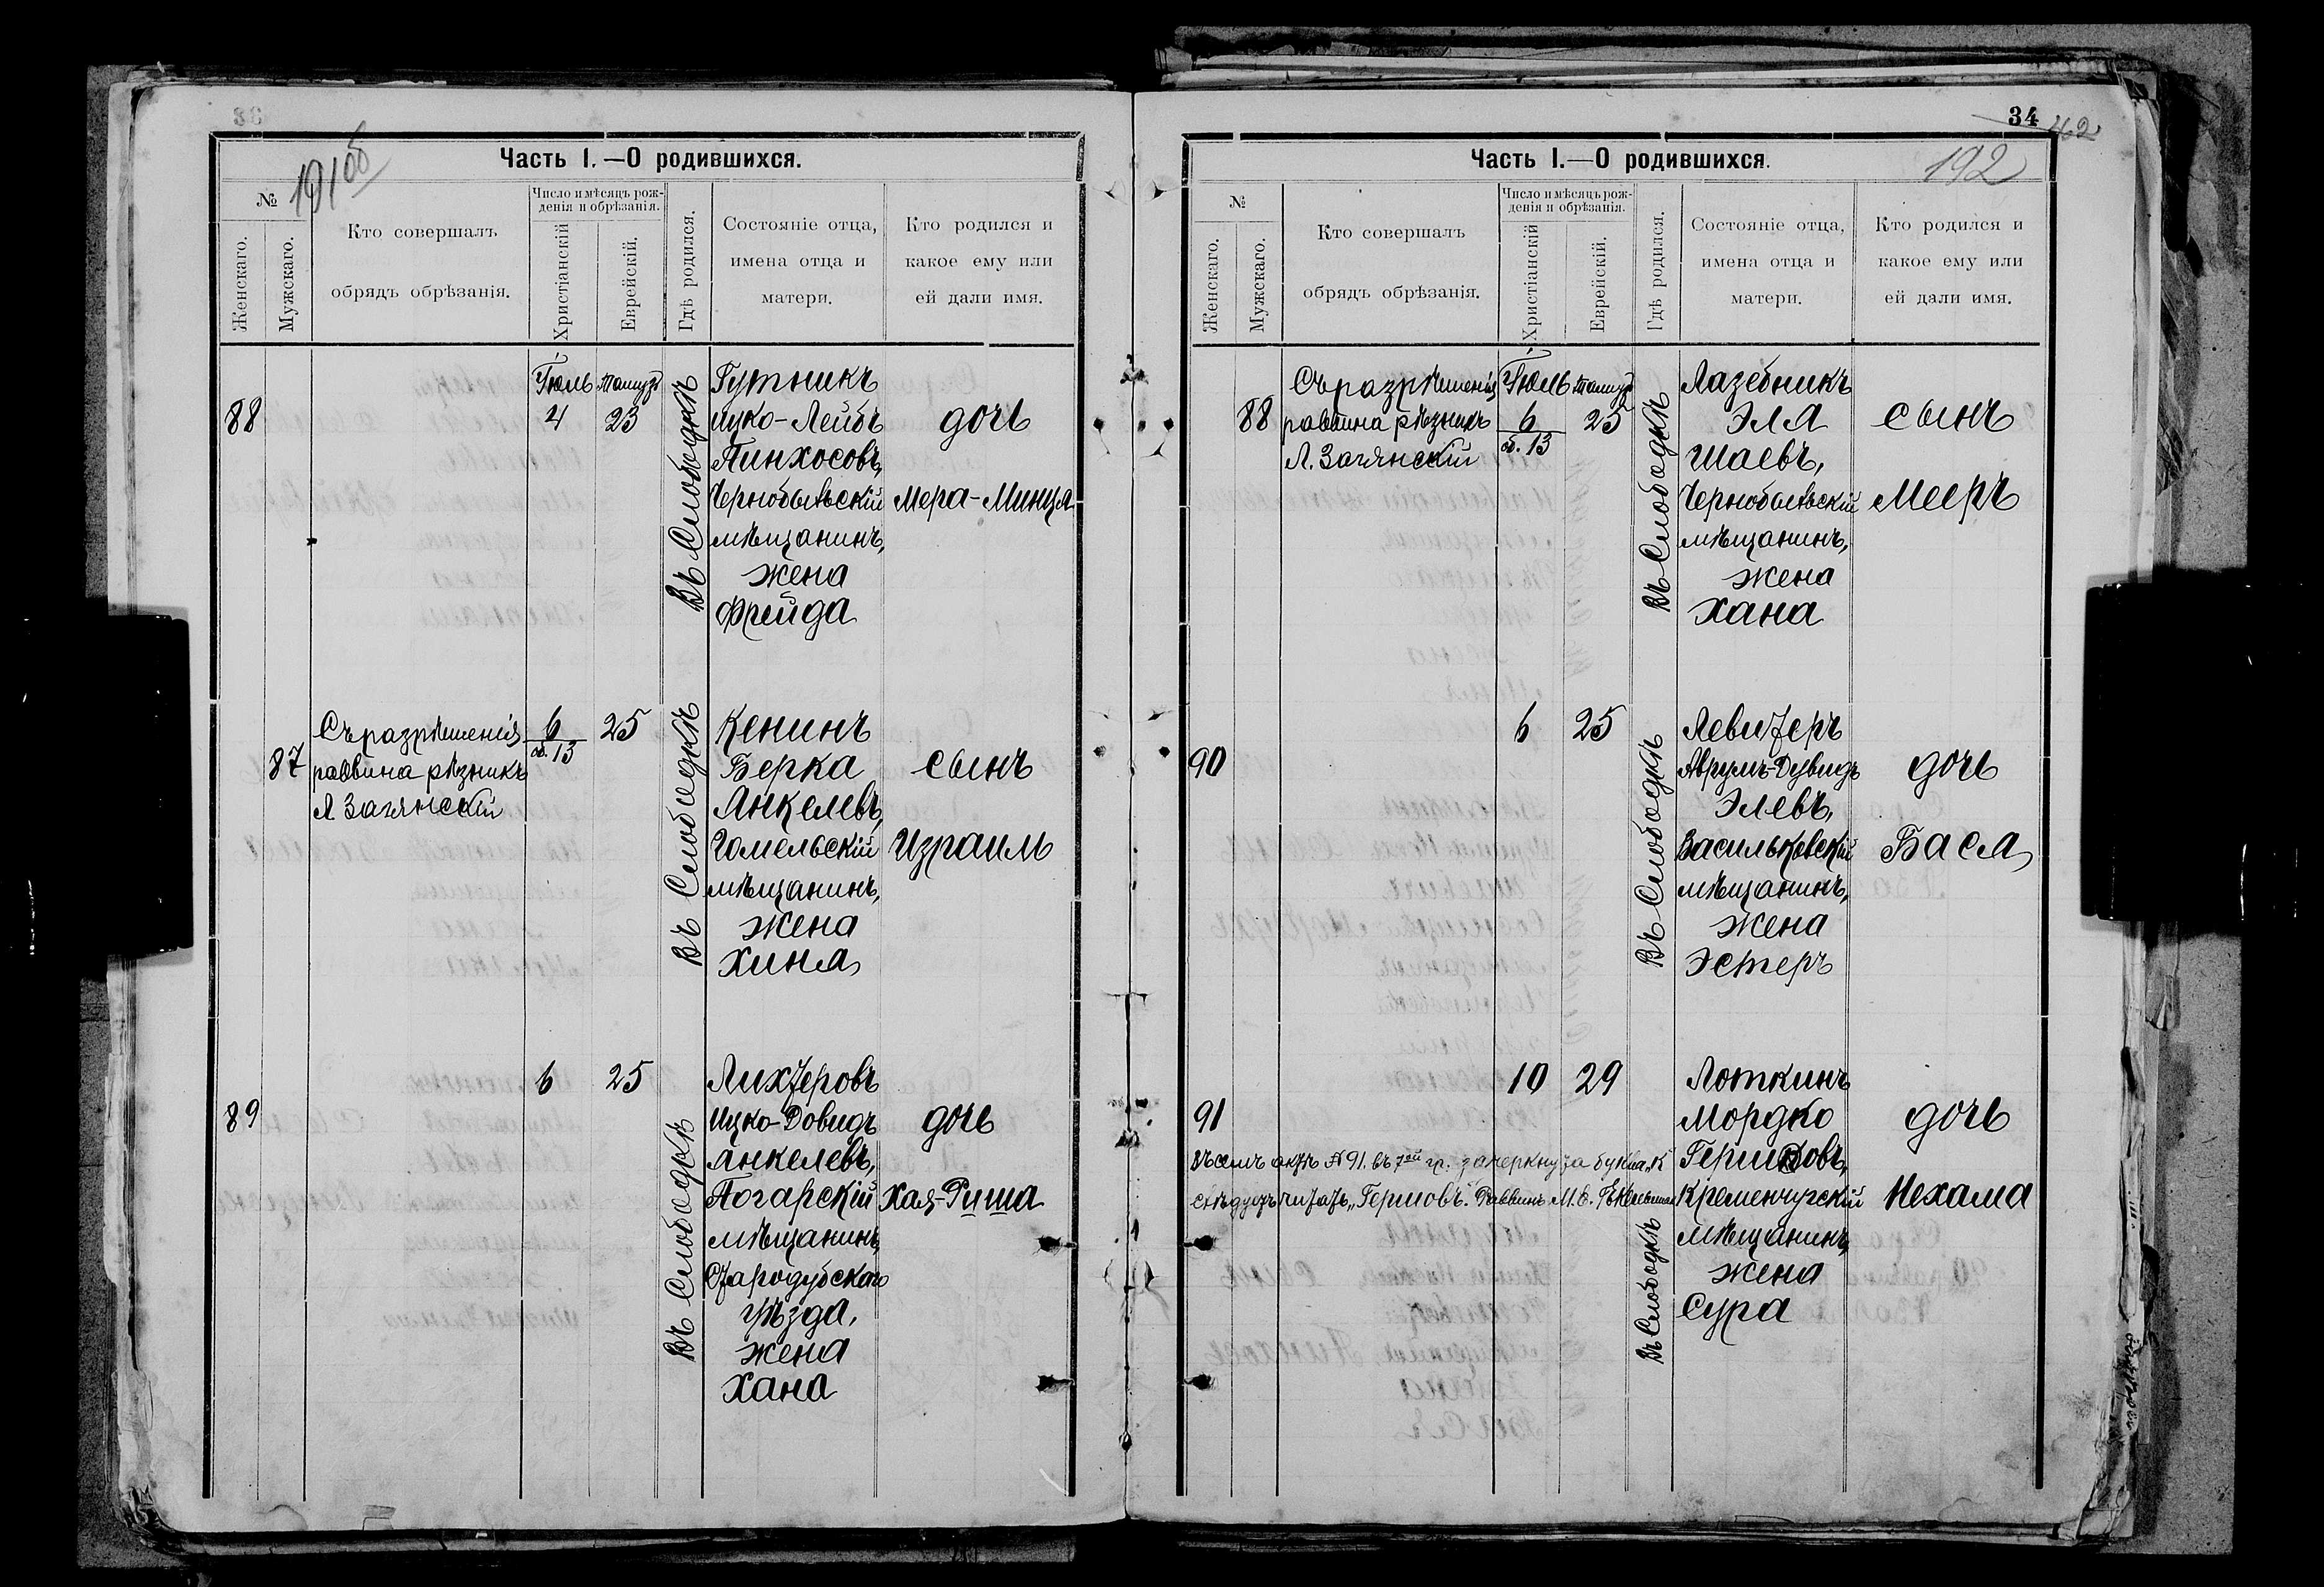 33
191об
Часть I.—О родившихся.
№
Женскаго.
Мужскаго.
Кто совершалъ
обрядъ обрѣзанія.
Число и мѣсяцъ рож-
денія и обрѣзанія.
Христіанскій
Еврейскій.
Гдѣ родился.
Состояніе отца,
имена отца и
матери.
Кто родился и
какое ему или
ей дали имя.
88
Іюль
4
Тамузъ
23
Въ Слободкѣ
Гутникъ
Ицко-Лейбъ
Пинхосовъ,
Чернобыльскій
мѣщанинъ,
жена
Фрейда
дочь
Мера-Минця
87
Съ разрѣшенія
раввина рѣзникъ
Л. Загянскій
6
об. 13
25
Въ Слободкѣ
Кенинъ
Берка
Янкелевъ,
Гомельскій
мѣщанинъ,
жена
Хиня
сынъ
Израиль
89
6
25
Въ Слободкѣ
Лихтеровъ
Ицко-Довидъ
Янкелевъ,
Погарскій
мѣщанинъ,
Стародубскаго
уѣзда,
жена
Хана
дочь
Хая-Риша
34
42
192
Часть I.—О родившихся.
№
Женскаго.
Мужскаго.
Кто совершалъ
обрядъ обрѣзанія.
Число и мѣсяцъ рож-
денія и обрѣзанія.
Христіанскій
Еврейскій.
Гдѣ родился.
Состояніе отца,
имена отца и
матери.
Кто родился и
какое ему или
ей дали имя.
88
Съ разрѣшенія
раввина рѣзникъ
Л. Загянскій
Іюль
6
об. 13
Тамузъ
25
Въ Слободкѣ
Лазебникъ
Эля
Шаевъ,
Чернобыльскій
мѣщанинъ,
жена
Хана
сынъ
Мееръ
90
6
25
Въ Слободкѣ
Левитеръ
Аврумъ-Дувидъ
Элевъ,
Васильковскій
мѣщанинъ,
жена
Эстеръ
дочь
Бася
91
10
29
Въ Слободкѣ
Лоткинъ
Мордко
Гершковъ,
Кременчугскій
мѣщанинъ,
жена
Сура
дочь
Нехама
Въ семъ актѣ №91. въ 7ой гр. зачеркнута буква „к
слѣдуетъ читать „Гершовъ". Раввинъ М. Е.